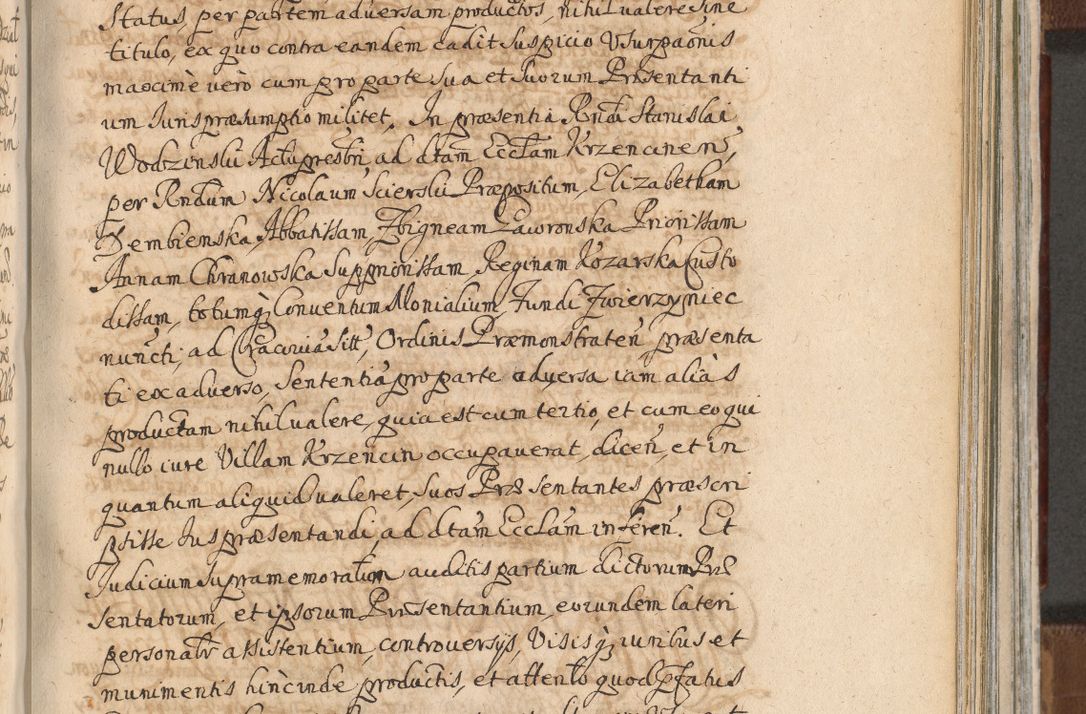 Status, per partem adversam productos, nihil valere sine
titulo, ex quo contra eandem cadit suspicio Usurpaõnis
maxime vero cum pro parte sua et suorum Præsentanti
um Juris præsumptio militet. In præsentia Rndi Stanislai
Wodzinslii Actu presbri, ad dtam Ecclam Krzencinen,
per Rndum Nicolaum Scierslii Præpositum, Elizabetham
Dembienska, Abbatissam, Zbigneam Zaworonska Priorissam
Annam Chranowska Suppriorissam, Reginam Kozarska Custo
dissam, totumq Conventum Monialium, Fundi Zwierzyniec
nuncti, ad Cracovia Sitt, Ordinis Præmonstraten præsenta
ti ex adverso, Sententia pro parte adversa iam alias
productam nihil valere, quia est cum tertio, et cum eo qui
nullo iure Villam Krzencin occupaverat, dicen, et in
quantum aliquid valeret, suos Præsentantes præscri
psisse Jus præsentandi, ad dtam Ecclam inferen. Et
Judicium supramemoratum auditis partium dictorum Præ
sentatorum, et ipsorum Præsentantium, eorundem lateri
personalr assistentium, controversijs, Visisq iuribus et
munimentis hincinde productis, et attento quod pfatus